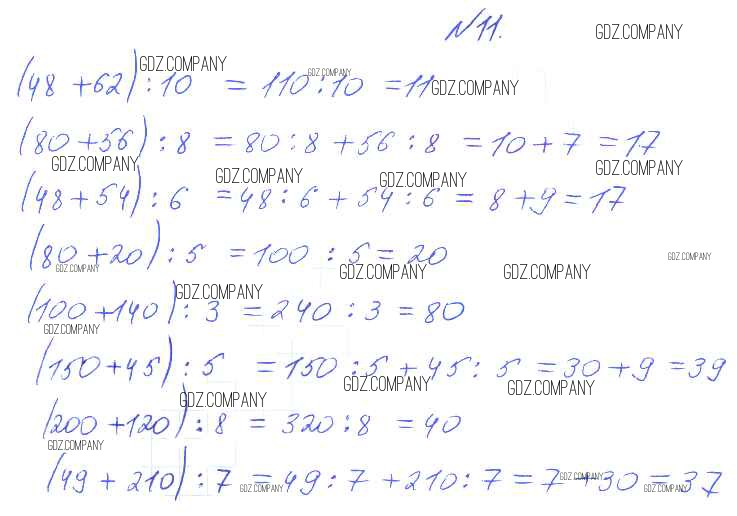 №11. GDZ.COMPANY
(48 + 62) : 10 = 110 : 10 = 11
GDZ.COMPANY GDZ.COMPANY GDZ.COMPANY
(80 + 56) : 8 = 80 : 8 + 56 : 8 = 10 + 7 = 17
GDZ.COMPANY GDZ.COMPANY GDZ.COMPANY GDZ.COMPANY
(48 + 54) : 6 = 48 : 6 + 54 : 6 = 8 + 9 = 17
(80 + 20) : 5 = 100 : 5 = 20
GDZ.COMPANY GDZ.COMPANY GDZ.COMPANY GDZ.COMPANY
GDZ.COMPANY
(100 + 140) : 3 = 240 : 3 = 80
GDZ.COMPANY
(150 + 45) : 5 = 150 : 5 + 45 : 5 = 30 + 9 = 39
GDZ.COMPANY GDZ.COMPANY GDZ.COMPANY
(200 + 120) : 8 = 320 : 8 = 40
GDZ.COMPANY
(49 + 210) : 7 = 49 : 7 + 210 : 7 = 7 + 30 = 37
GDZ.COMPANY GDZ.COMPANY GDZ.COMPANY